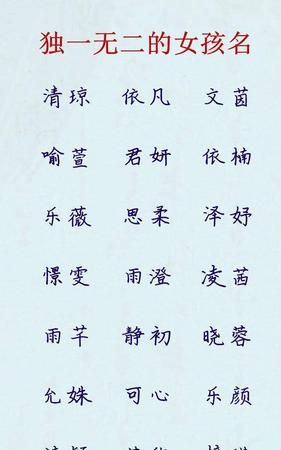 独一无二的女孩名
清琼 依凡 文茵
喻萱 君妍 依楠
乐薇 思柔 泽妤
憬雯 雨澄 凌茜
雨芊 静初 晓蓉
允姝 可心 乐颜